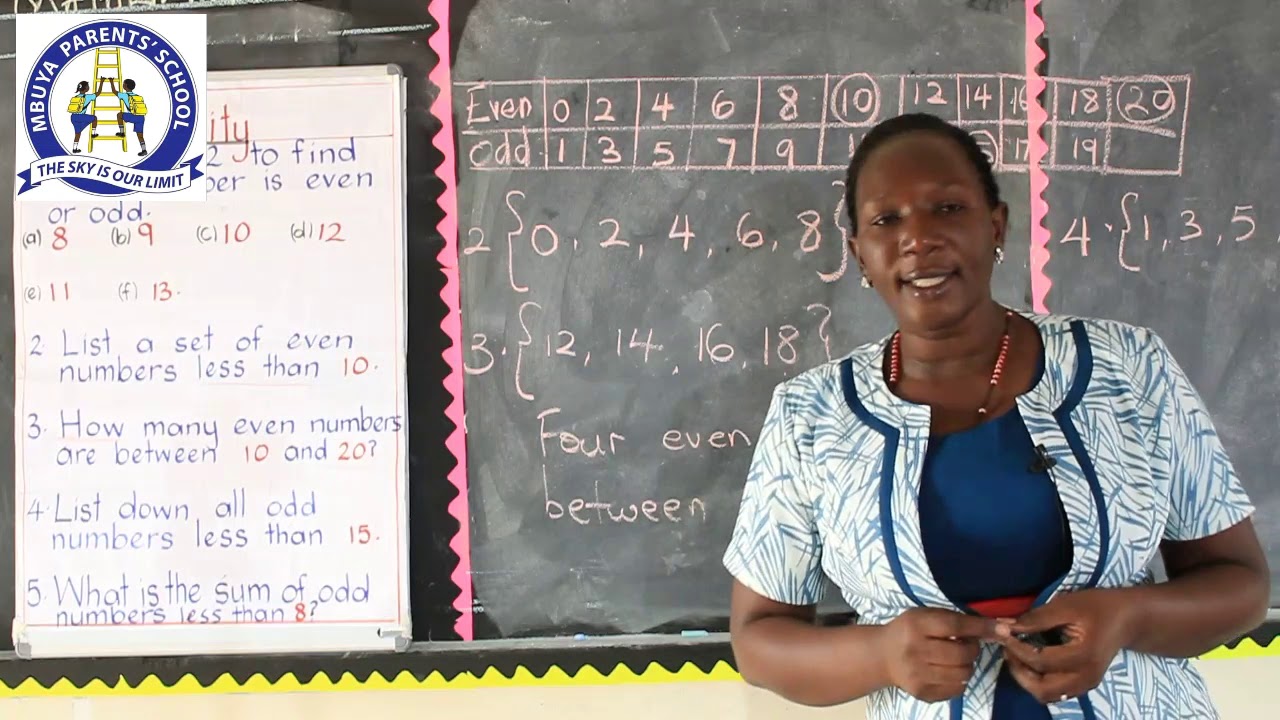 MBUYA PARENTS' SCHOOL
THE SKY IS OUR LIMIT
ity
2 to find
ber is even
or odd.
(a) 8 (b) 9 (c) 10 (d) 12
(e) 11 (f) 13.
2. List a set of even
numbers less than 10.
3. How many even numbers
are between 10 and 20?
4. List down all odd
numbers less than 15.
5. What is the sum of odd
numbers less than 8?
Even 0 2 4 6 8 10 12 14 16 18 20
Odd 1 3 5 7 9 1 17 19
2 {0, 2, 4, 6, 8}
3. {12, 14, 16, 18}
Four even
between
4. {1, 3, 5,